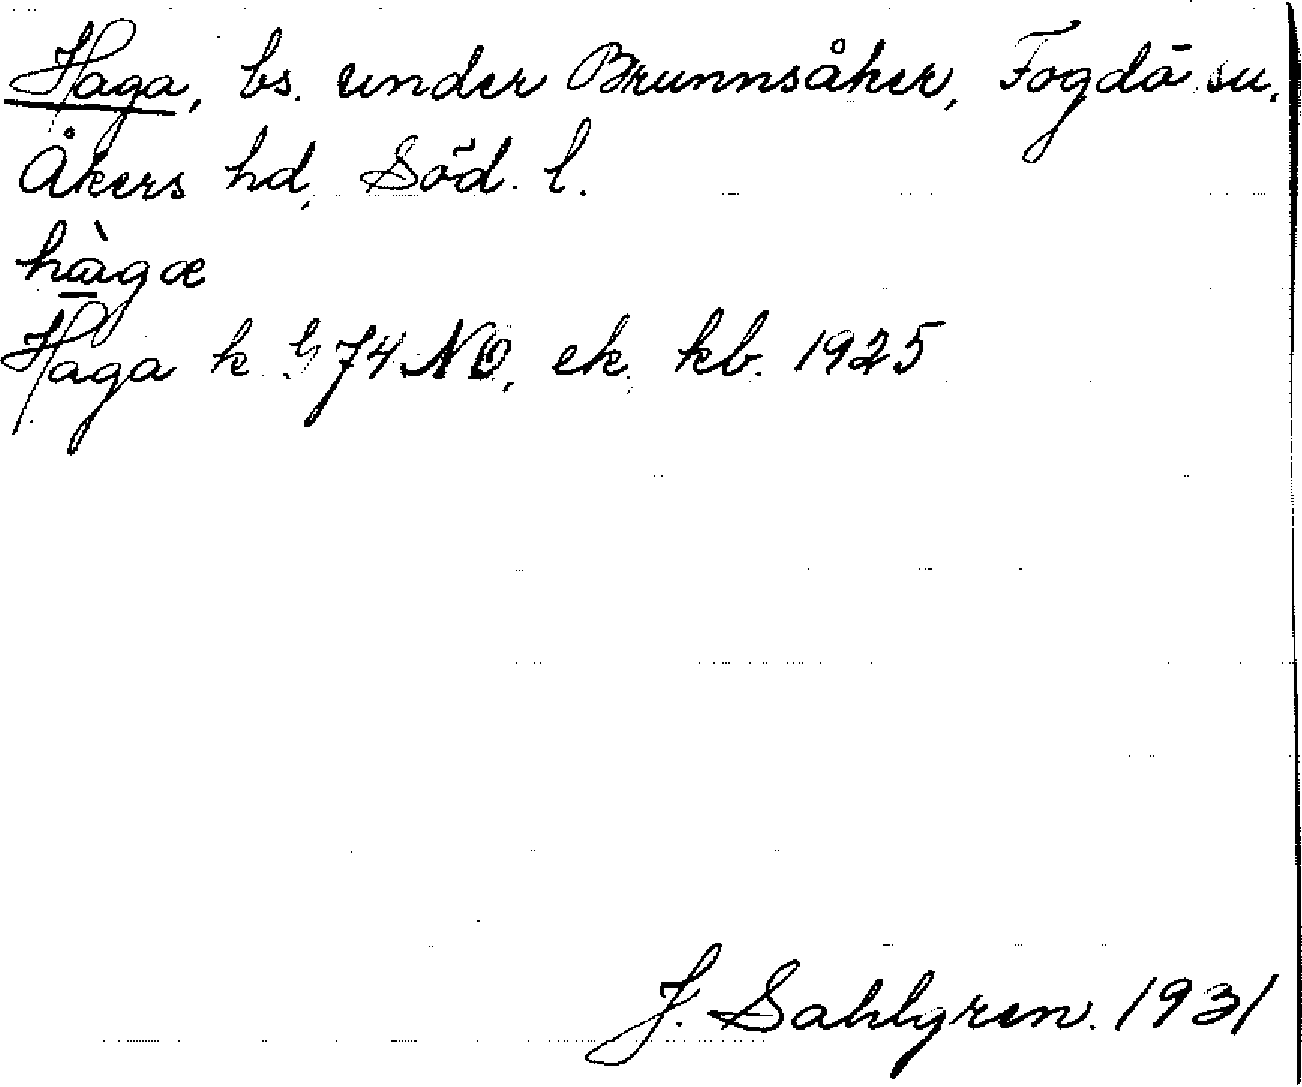 Haga, bs. under Brunnsåker, Fogdö sn,
Åkers hd, Söd. l.
hàgæ
Haga k G 74 NO, ek. kb. 1925
J. Sahlgren. 1931